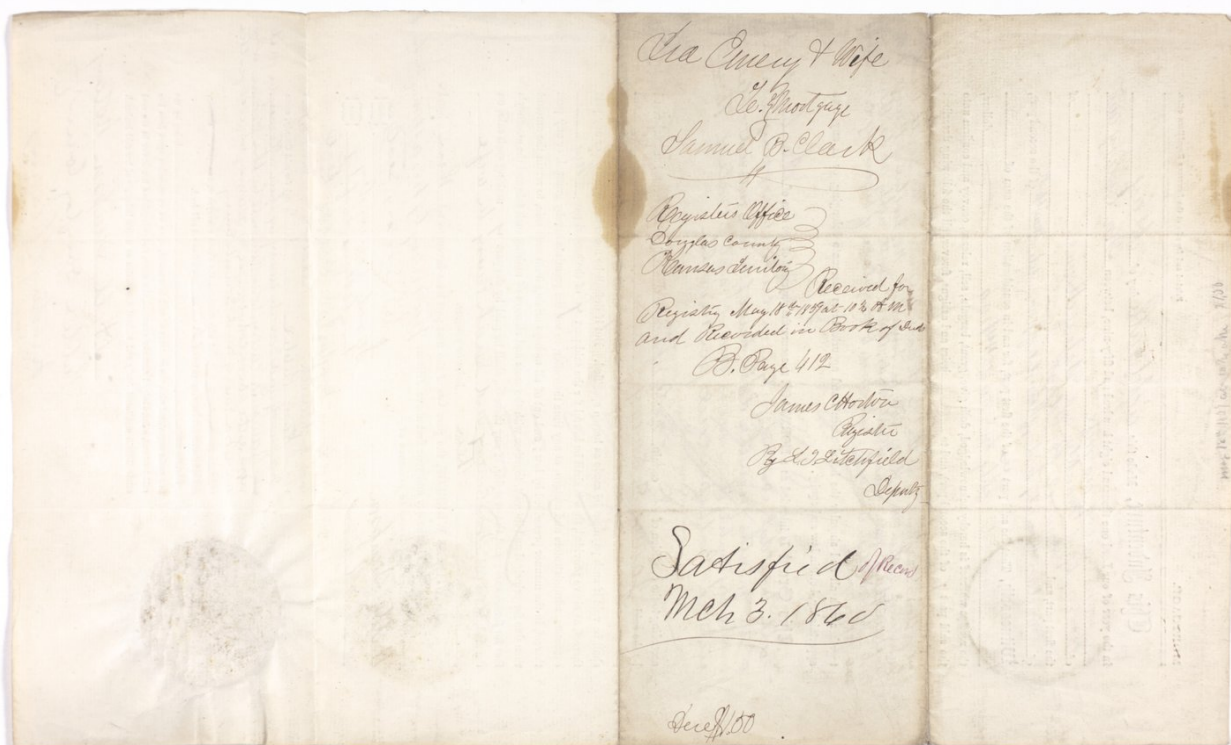 Ira Emery & Wife
To } Mortgage
Samuel B. Clark
Registers Office
Douglas County
Kansas Territory
Received for
Registry May 18th 1859 at 10 A M
and Recorded in Book of
B. Page 412
James C Horton
Register
By L. Litchfield
Deputy
Satisfied of Record
Mch 3. 1860